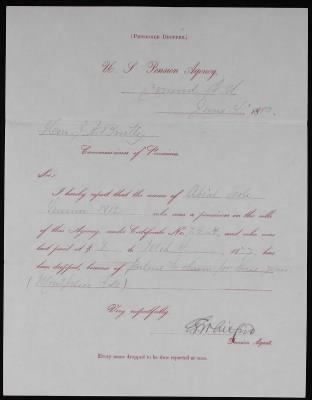 (PENSIONER DROPPED.)
U. S. Pension Agency,
Concord N. H.
June 1880.
Hon. J. A. Bentley
Commissioner of Pensions
Sir:
I hereby report that the name of Abial
1812 who was a pensioner on the rolls
of this Agency, under Certificate No. and who was
last paid at $ 8 to Mch 4, 1877, has
been dropped, because of failure to claim for three years
Very respectfully,
Pension Agent.
Every name dropped to be thus reported at once.